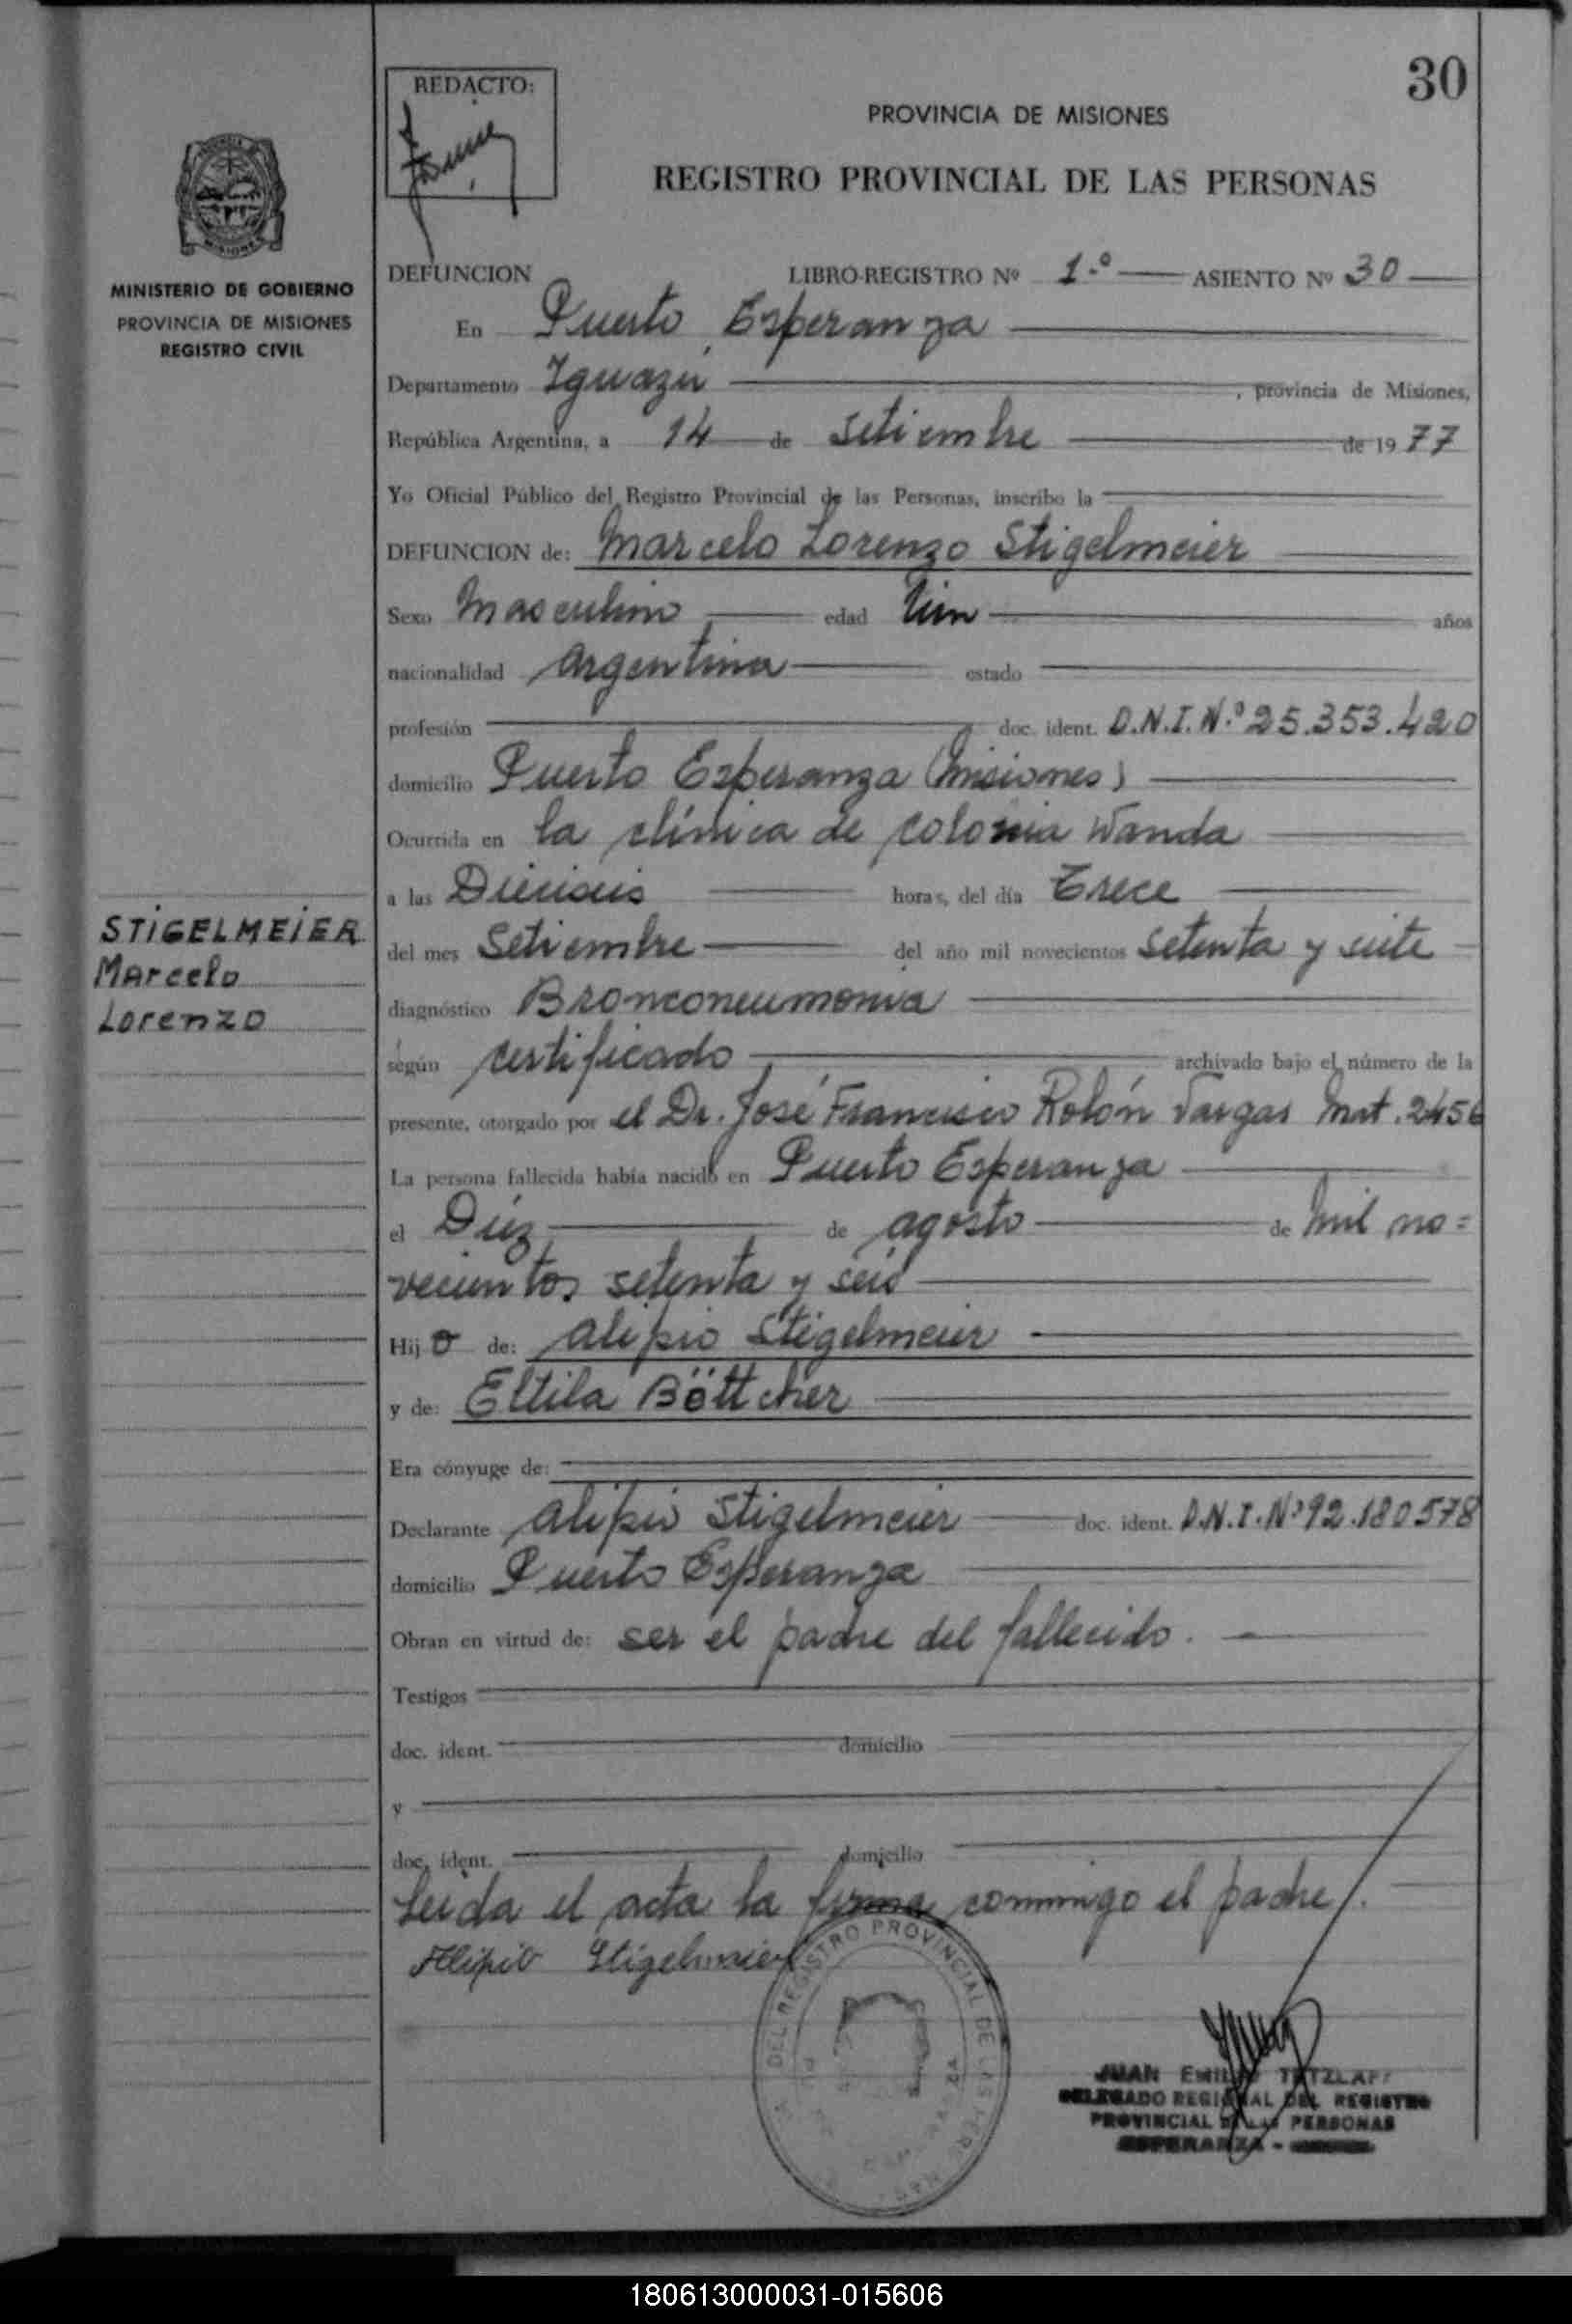 30
REDACTO:
PROVINCIA DE MISIONES
REGISTRO PROVINCIAL DE LAS PERSONAS
MINISTERIO DE GOBIERNO
PROVINCIA DE MISIONES
REGISTRO CIVIL
DEFUNCION LIBRO-REGISTRO Nº 1.º ASIENTO Nº 30
En Puerto Esperanza
Departamento Iguazú, provincia de Misiones,
República Argentina, a 14 de setiembre de 1977
Yo Oficial Público del Registro Provincial de las Personas, inscribo la
DEFUNCION de: Marcelo Lorenzo Stigelmeier
Sexo Masculino edad Un años
nacionalidad argentina estado
profesión doc. ident. D.N.I. N.º 25.353.420
domicilio Puerto Esperanza (Misiones)
Ocurrida en la clínica de colonia Wanda
a las Dieciseis horas, del día Trece
STIGELMEIER
Marcelo
Lorenzo
del mes Setiembre del año mil novecientos setenta y siete
diagnóstico Bronconeumonia
según certificado archivado bajo el número de la
presente, otorgado por el Dr. José Francisco Rolón Vargas Mat. 2456
La persona fallecida había nacido en Puerto Esperanza
el Diez de agosto de mil no=
vecientos setenta y seis
Hijo de: Alipio Stigelmeier
y de: Eltila Böttcher
Era cónyuge de:
Declarante Alipio Stigelmeier doc. ident. D.N.I. Nº 92.180578
domicilio Puerto Esperanza
Obran en virtud de: ser el padre del fallecido.
Testigos
doc. ident. domicilio
y
doc. ident. domicilio
Leida el acta la firma conmigo el padre.
Alipio Stigelmeier
DEL REGISTRO PROVINCIAL DE LAS PERSONAS
JUAN EMILIO TETZLAFF
DELEGADO REGIONAL DEL REGISTRO
PROVINCIAL DE LAS PERSONAS
ESPERANZA -
180613000031-015606